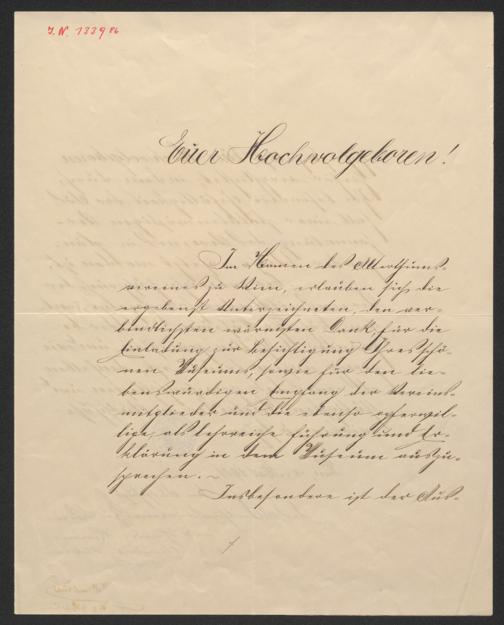 J. N. 1339
Euer Hochwolgeboren!
Im Namen des Alterthums-
vereines zu Wien, erlauben sich die
ergebenst Unterzeichneten, den ver-
bindlichsten wärmsten Dank, für die
Einladung zur Besichtigung Ihres schö-
nen Museums, sowie für den lie-
benswürdigen Empfang der Vereins-
mitglieder und die ebenso opferwil-
lige, als lehrreiche Führung und Er-
klärung in dem Museum auszu-
sprechen. ~
Insbesondere ist der Aus-